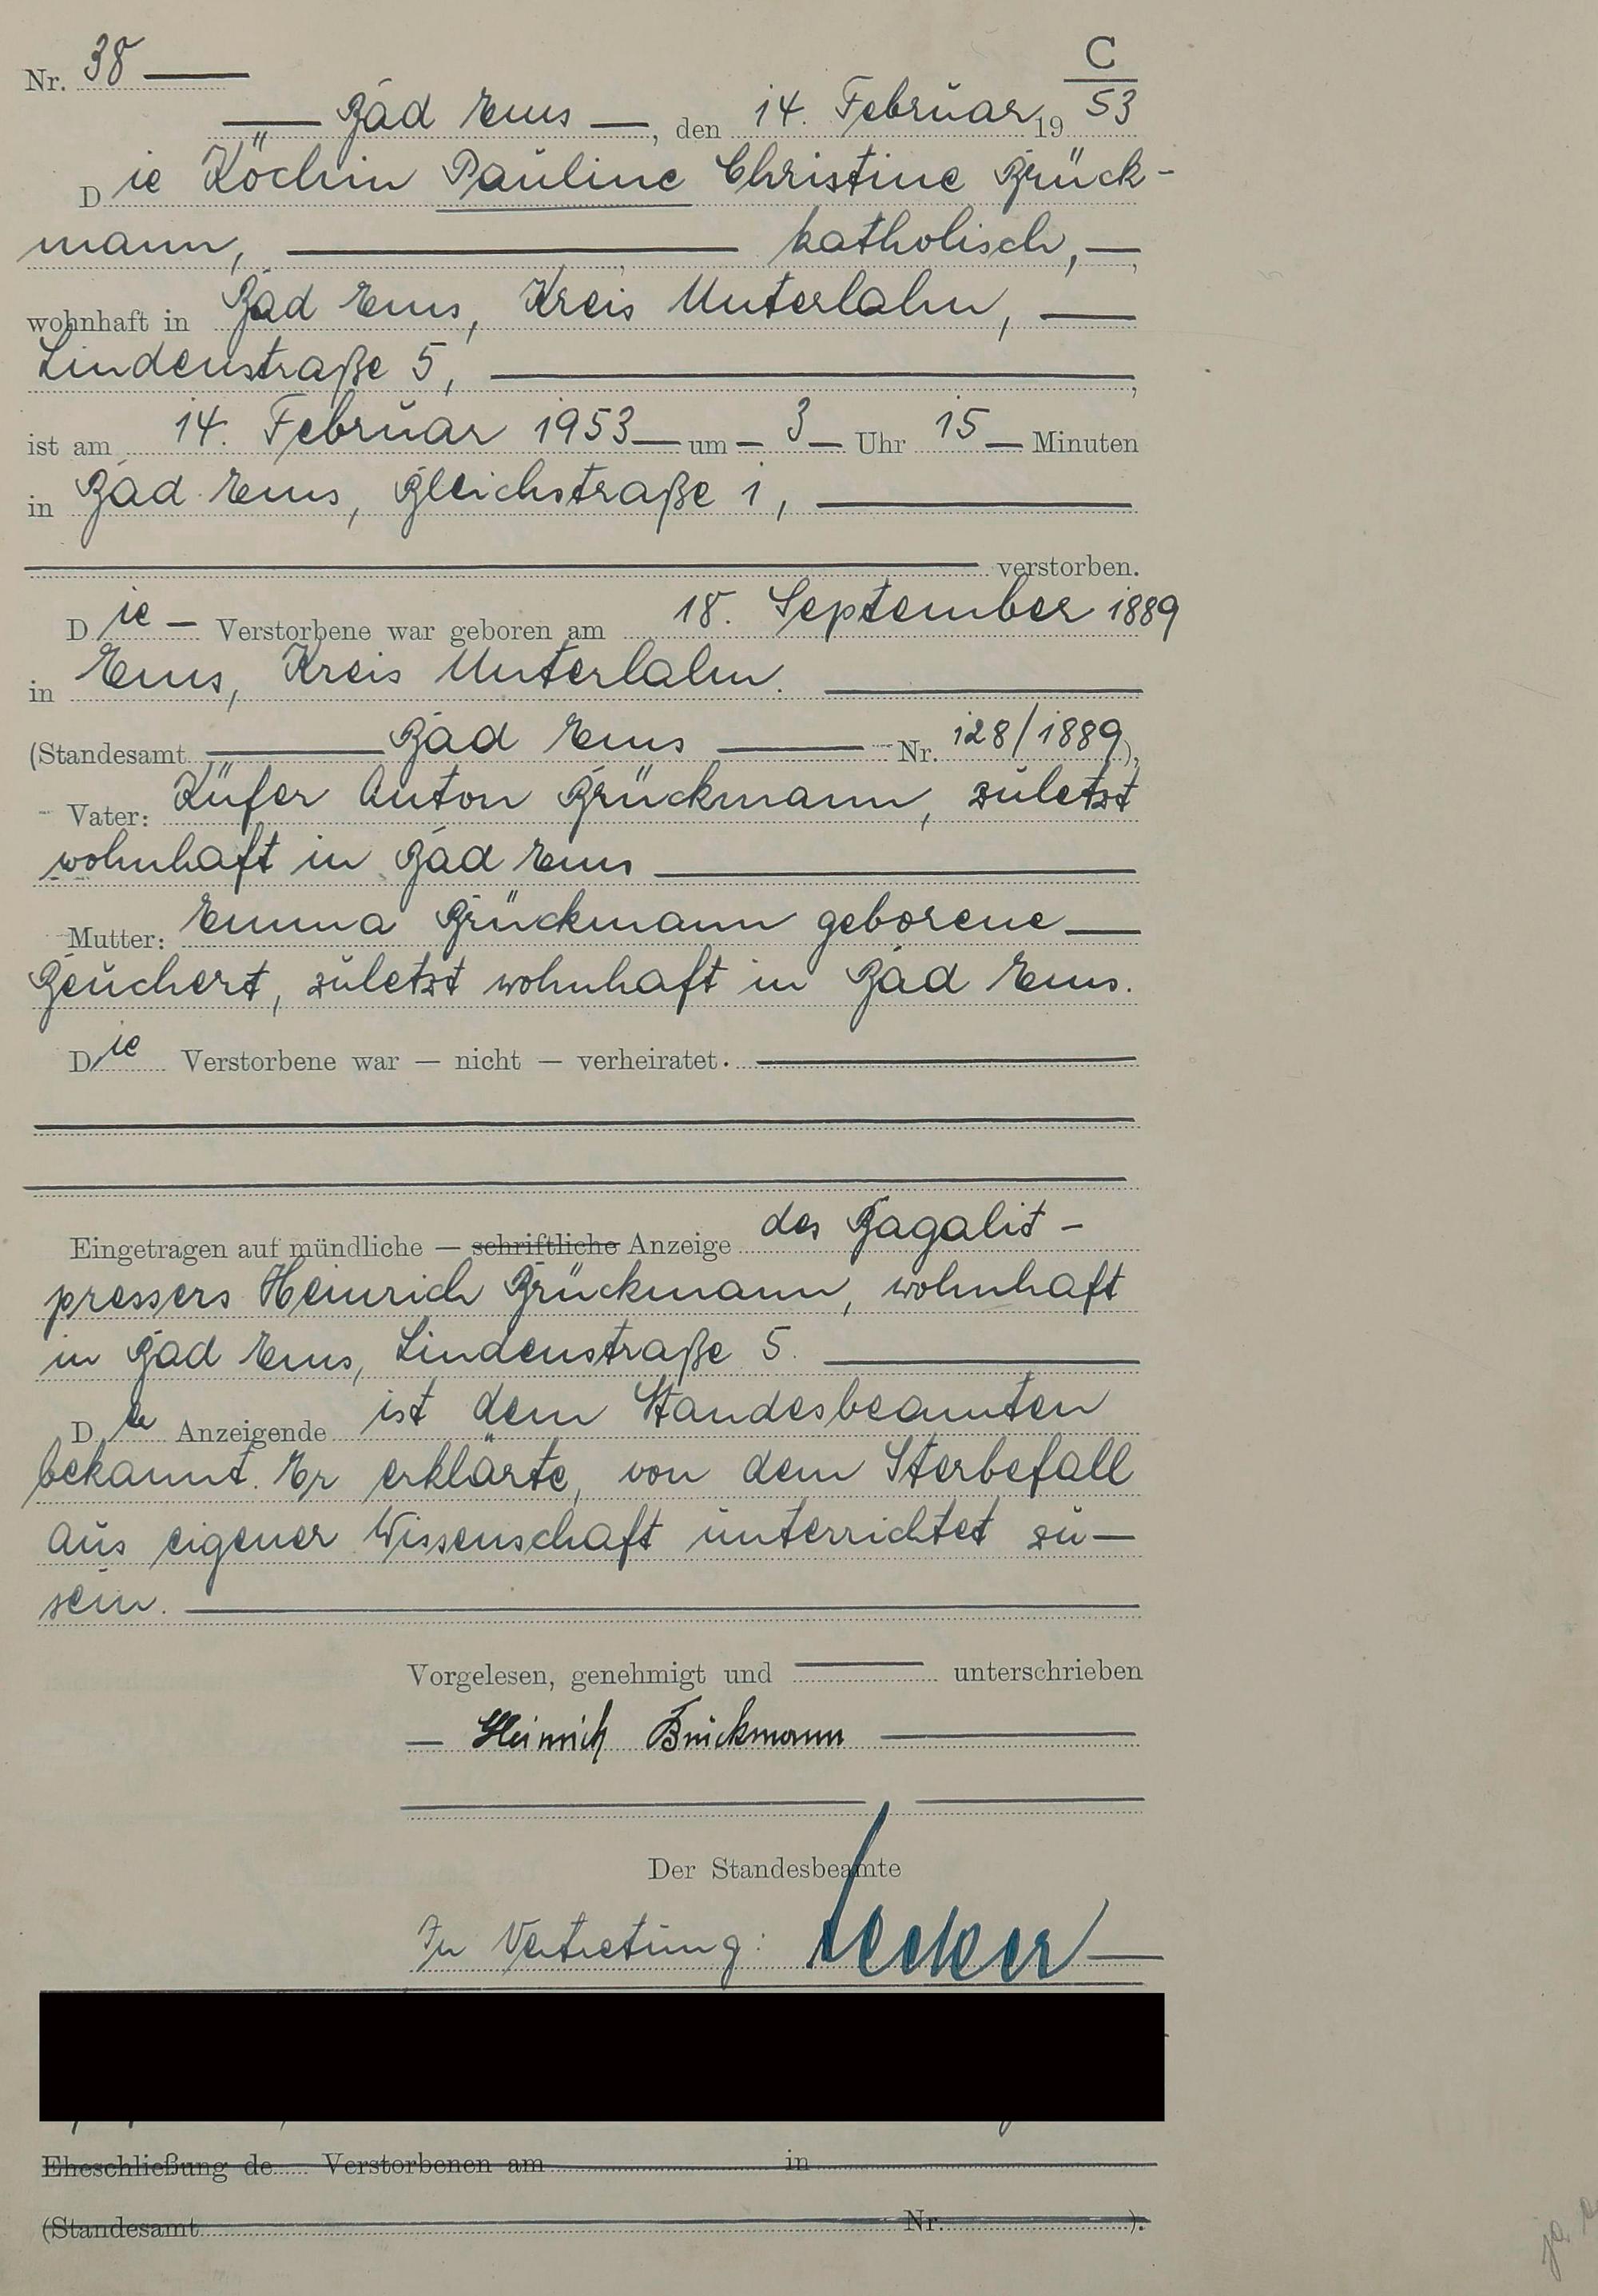 C
Nr. 38
Bad Ems, den 14. Februar 19 53
Die Köchin Pauline Christine Brück-
mann, katholisch,
wohnhaft in Bad Ems, Kreis Unterlahn,
Lindenstraße 5,
ist am 14. Februar 1953 um 3 Uhr 15 Minuten
in Bad Ems, Bleichstraße 1,
verstorben.
Die Verstorbene war geboren am 18. September 1889
in Ems, Kreis Unterlahn.
(Standesamt Bad Ems Nr. 128/1889),
Vater: Küfer Anton Brückmann, zuletzt
wohnhaft in Bad Ems
Mutter: Emma Brückmann geborene
Beuchert, zuletzt wohnhaft in Bad Ems.
Die Verstorbene war — nicht — verheiratet.
Eingetragen auf mündliche — schriftliche Anzeige des Bagalit-
pressers Heinrich Brückmann, wohnhaft
in Bad Ems, Lindenstraße 5.
Der Anzeigende ist dem Standesbeamten
bekannt. Er erklärte, von dem Sterbefall
aus eigener Wissenschaft unterrichtet zu
sein.
Vorgelesen, genehmigt und unterschrieben
Heinrich Brückmann
Der Standesbeamte
In Vertretung:
Eheschließung de Verstorbenen am in
(Standesamt Nr. ).